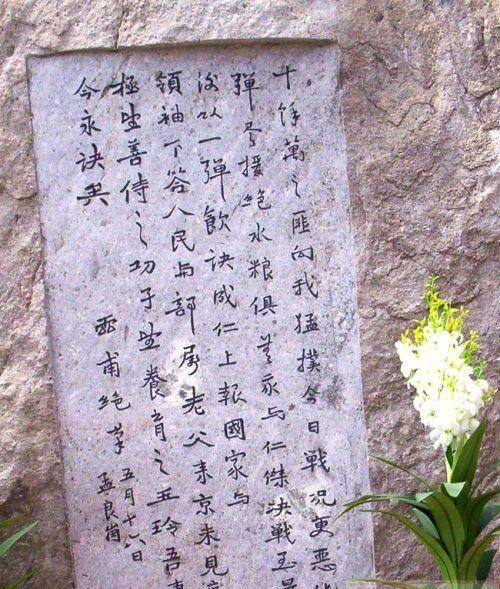 十餘萬之匪向我猛撲今日戰況更惡
彈尽援絕水粮俱無我与仁傑決戰至
後以一彈飲訣成仁上報國家与
領袖下答人民与部屬老父来京未見
極望善侍之幼子望養育之玉玲吾
今永訣矣
灵甫絕筆
五月十六日
孟良崮